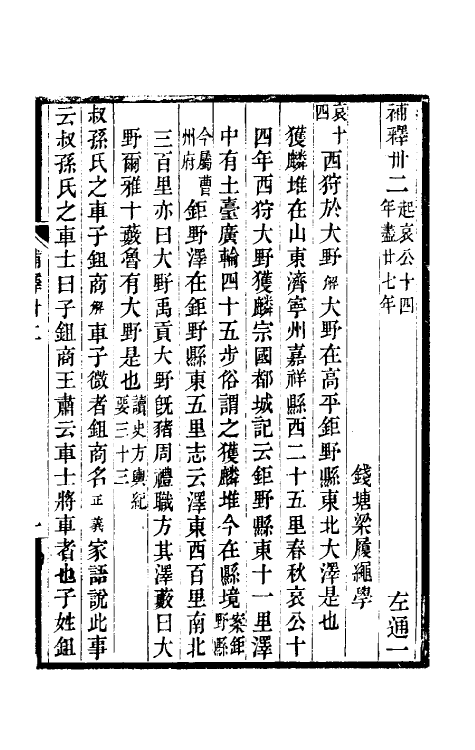 補釋卅二起哀公十四年盡廿七年 左通一
錢塘梁履繩學
哀十四西狩於大野解大野在高平鉅野縣東北大澤是也
獲麟堆在山東濟寧州嘉祥縣西二十五里春秋哀公十
四年西狩大野獲麟宗國都城記云鉅野縣東十一里澤
中有土臺廣輪四十五步俗謂之獲麟堆今在縣境案鉅野縣
今屬曹州府鉅野澤在鉅野縣東五里志云澤東西百里南北
三百里亦曰大野禹貢大野旣豬周禮職方其澤藪曰大
野爾雅十藪魯有大野是也讀史方輿紀要三十三
叔孫氏之車子鉏商解車子微者鉏商名正義家語說此事
云叔孫氏之車士曰子鉏商王肅云車士將車者也子姓鉏
補釋卅二
一